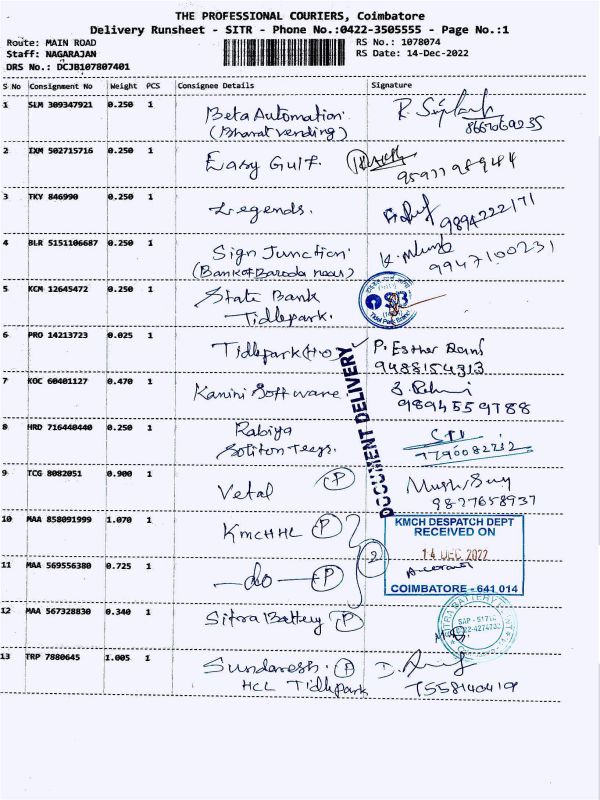 THE PROFESSIONAL COURIERS, Coimbatore
Delivery Runsheet - SITR - Phone No.:0422-3505555 - Page No.:1
Route: MAIN ROAD
RS No.: 1078074
Staff: NAGARAJAN
RS Date: 14-Dec-2022
DRS No.: DCJB107807401
S No Consignment No Weight PCS Consignee Details Signature
1 SLM 309347921 0.250 1 Beta Automation
(Bharat vending) 8667069235
2 IXM 502715716 0.250 1 Easy Gulf.
3 TKY 846990 0.250 1 Legends. 9894222171
4 BLR 5151106687 0.250 1 Sign Junction 9947100231
(Bank of Baroda near)
5 KCM 12645472 0.250 1 State Bank
Tidlepark.
6 PRO 14213723 0.025 1 Tidlepark (HO) P. Esther Rani
9488154313
7 KOC 60401127 0.470 1 Kanini Software.
9894559788
8 HRD 716440440 0.250 1 Rabiya
7790082212
DOCUMENT DELIVERY
9 TCG 8082051 0.900 1 Vetal P
9827658937
10 MAA 858091999 1.070 1 KMCHHL P
KMCH DESPATCH DEPT
RECEIVED ON
14 DEC 2022
COIMBATORE - 641 014
11 MAA 569556380 0.725 1 -do- P 2
12 MAA 567328830 0.340 1 Sitra Battery P
13 TRP 7880645 1.005 1 Sundaresh. P
HCL Tidlepark 7558140419